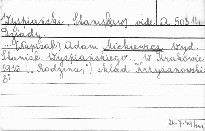 Wyspiański Stanisław vide A. 503
Dziady.
... (Napisał) Adam Mickiewicz Wyd.
Stanisł. Wyspiańskiego... w Krakowie
"Rodzina," skład Krzyżanowski
8°